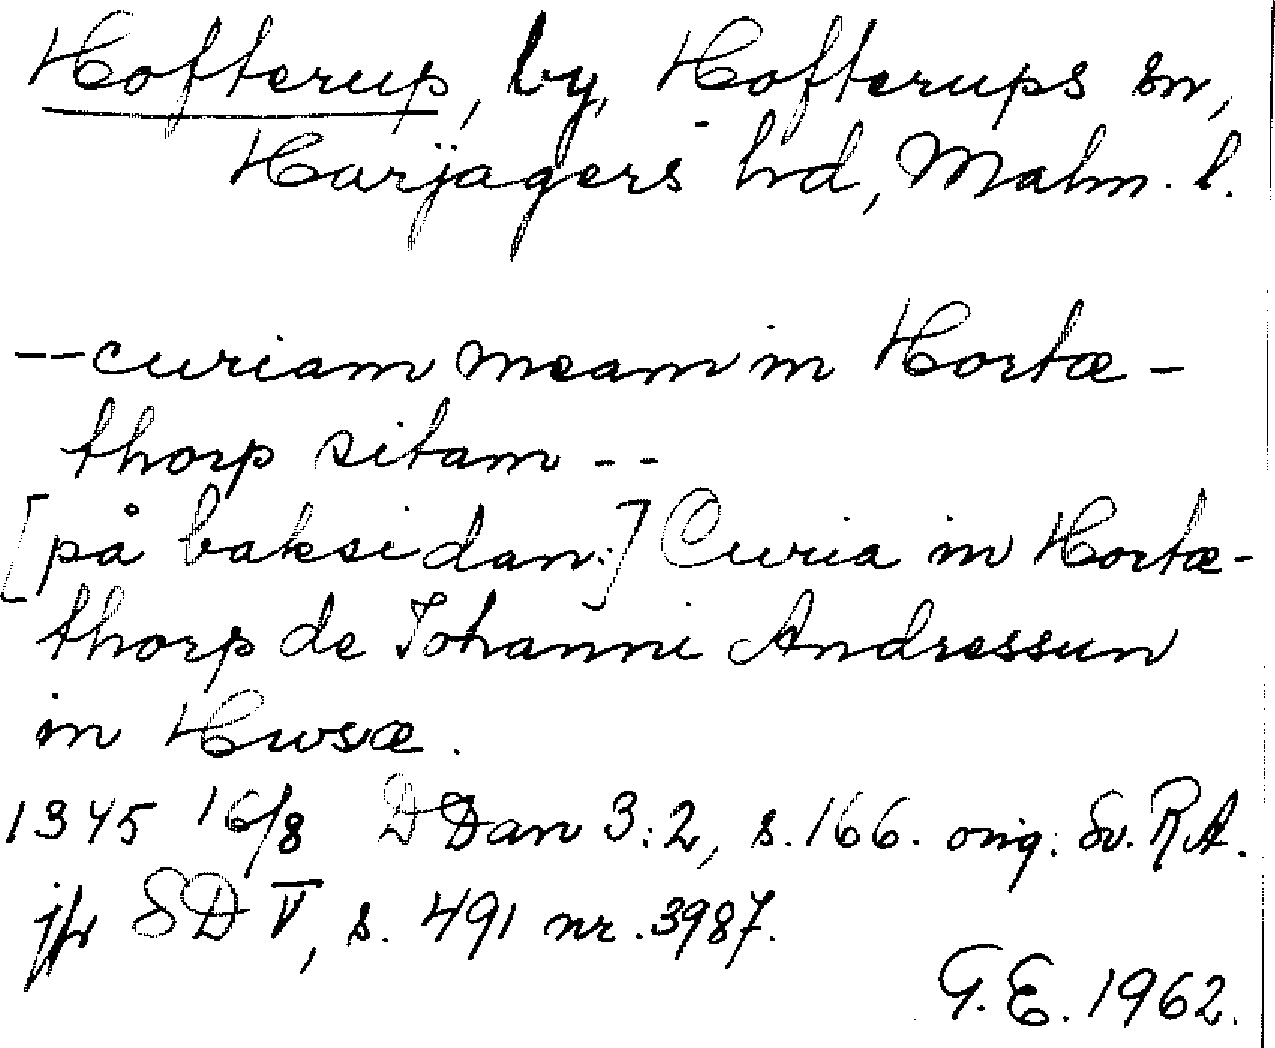 Hofterup, by, Hofterups sn,
Harjagers hd, Malm. l.
-- curiam meam in Hortæ-
thorp sitam --
[på baksidan:] Curia in Hortæ-
thorp de Iohanni Andressun
in Hwsæ.
1345 16/8 DDan 3:2, s. 166. orig. Sv. RA.
jfr SD V, s. 491 nr. 3987.
G.E. 1962.